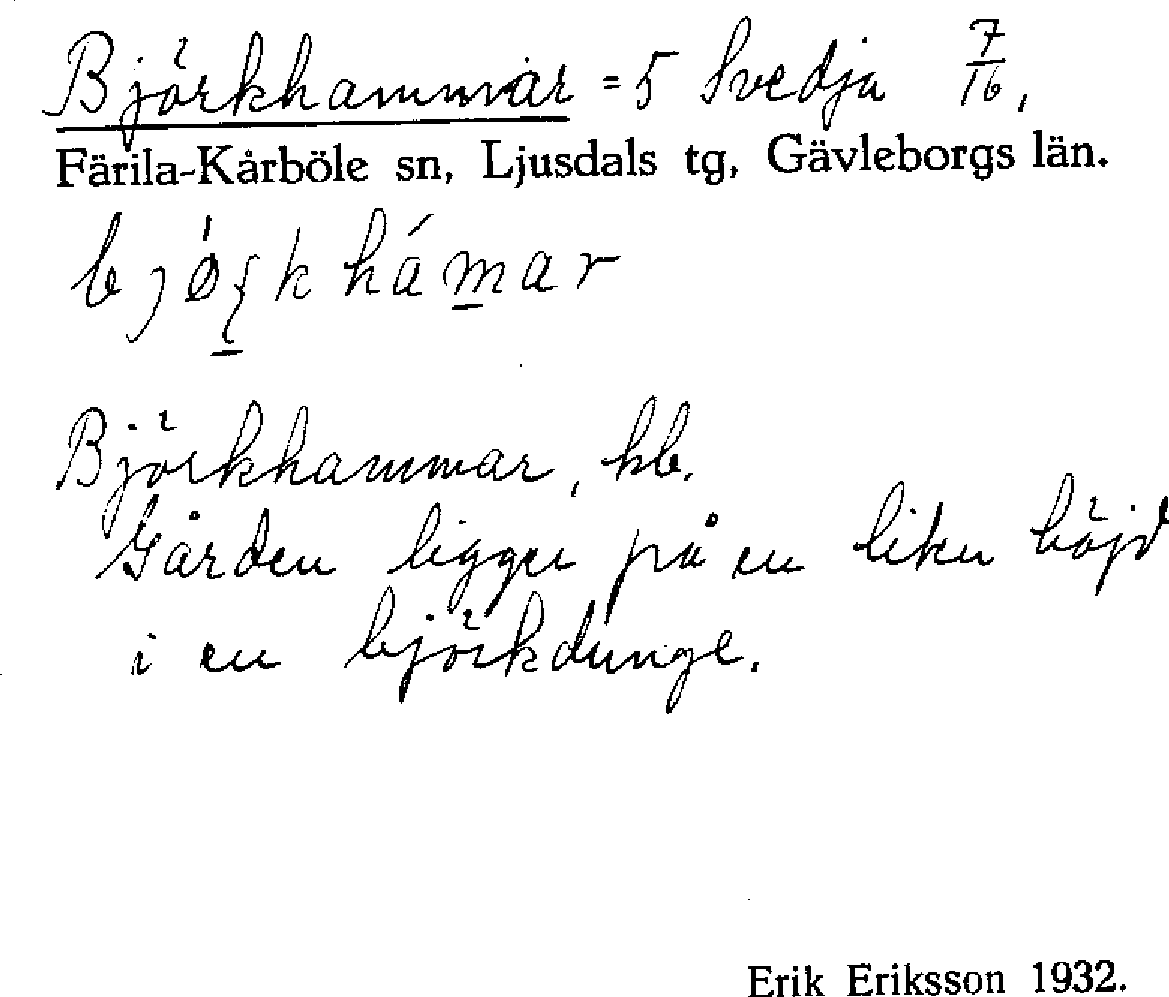 Björkhammar = 5 Svedja 7/16,
Färila-Kårböle sn, Ljusdals tg, Gävleborgs län.
bjø̀ʂkhámar
Björkhammar, hb.
Gården ligger på en liten höjd
i en björkdunge.
Erik Eriksson 1932.